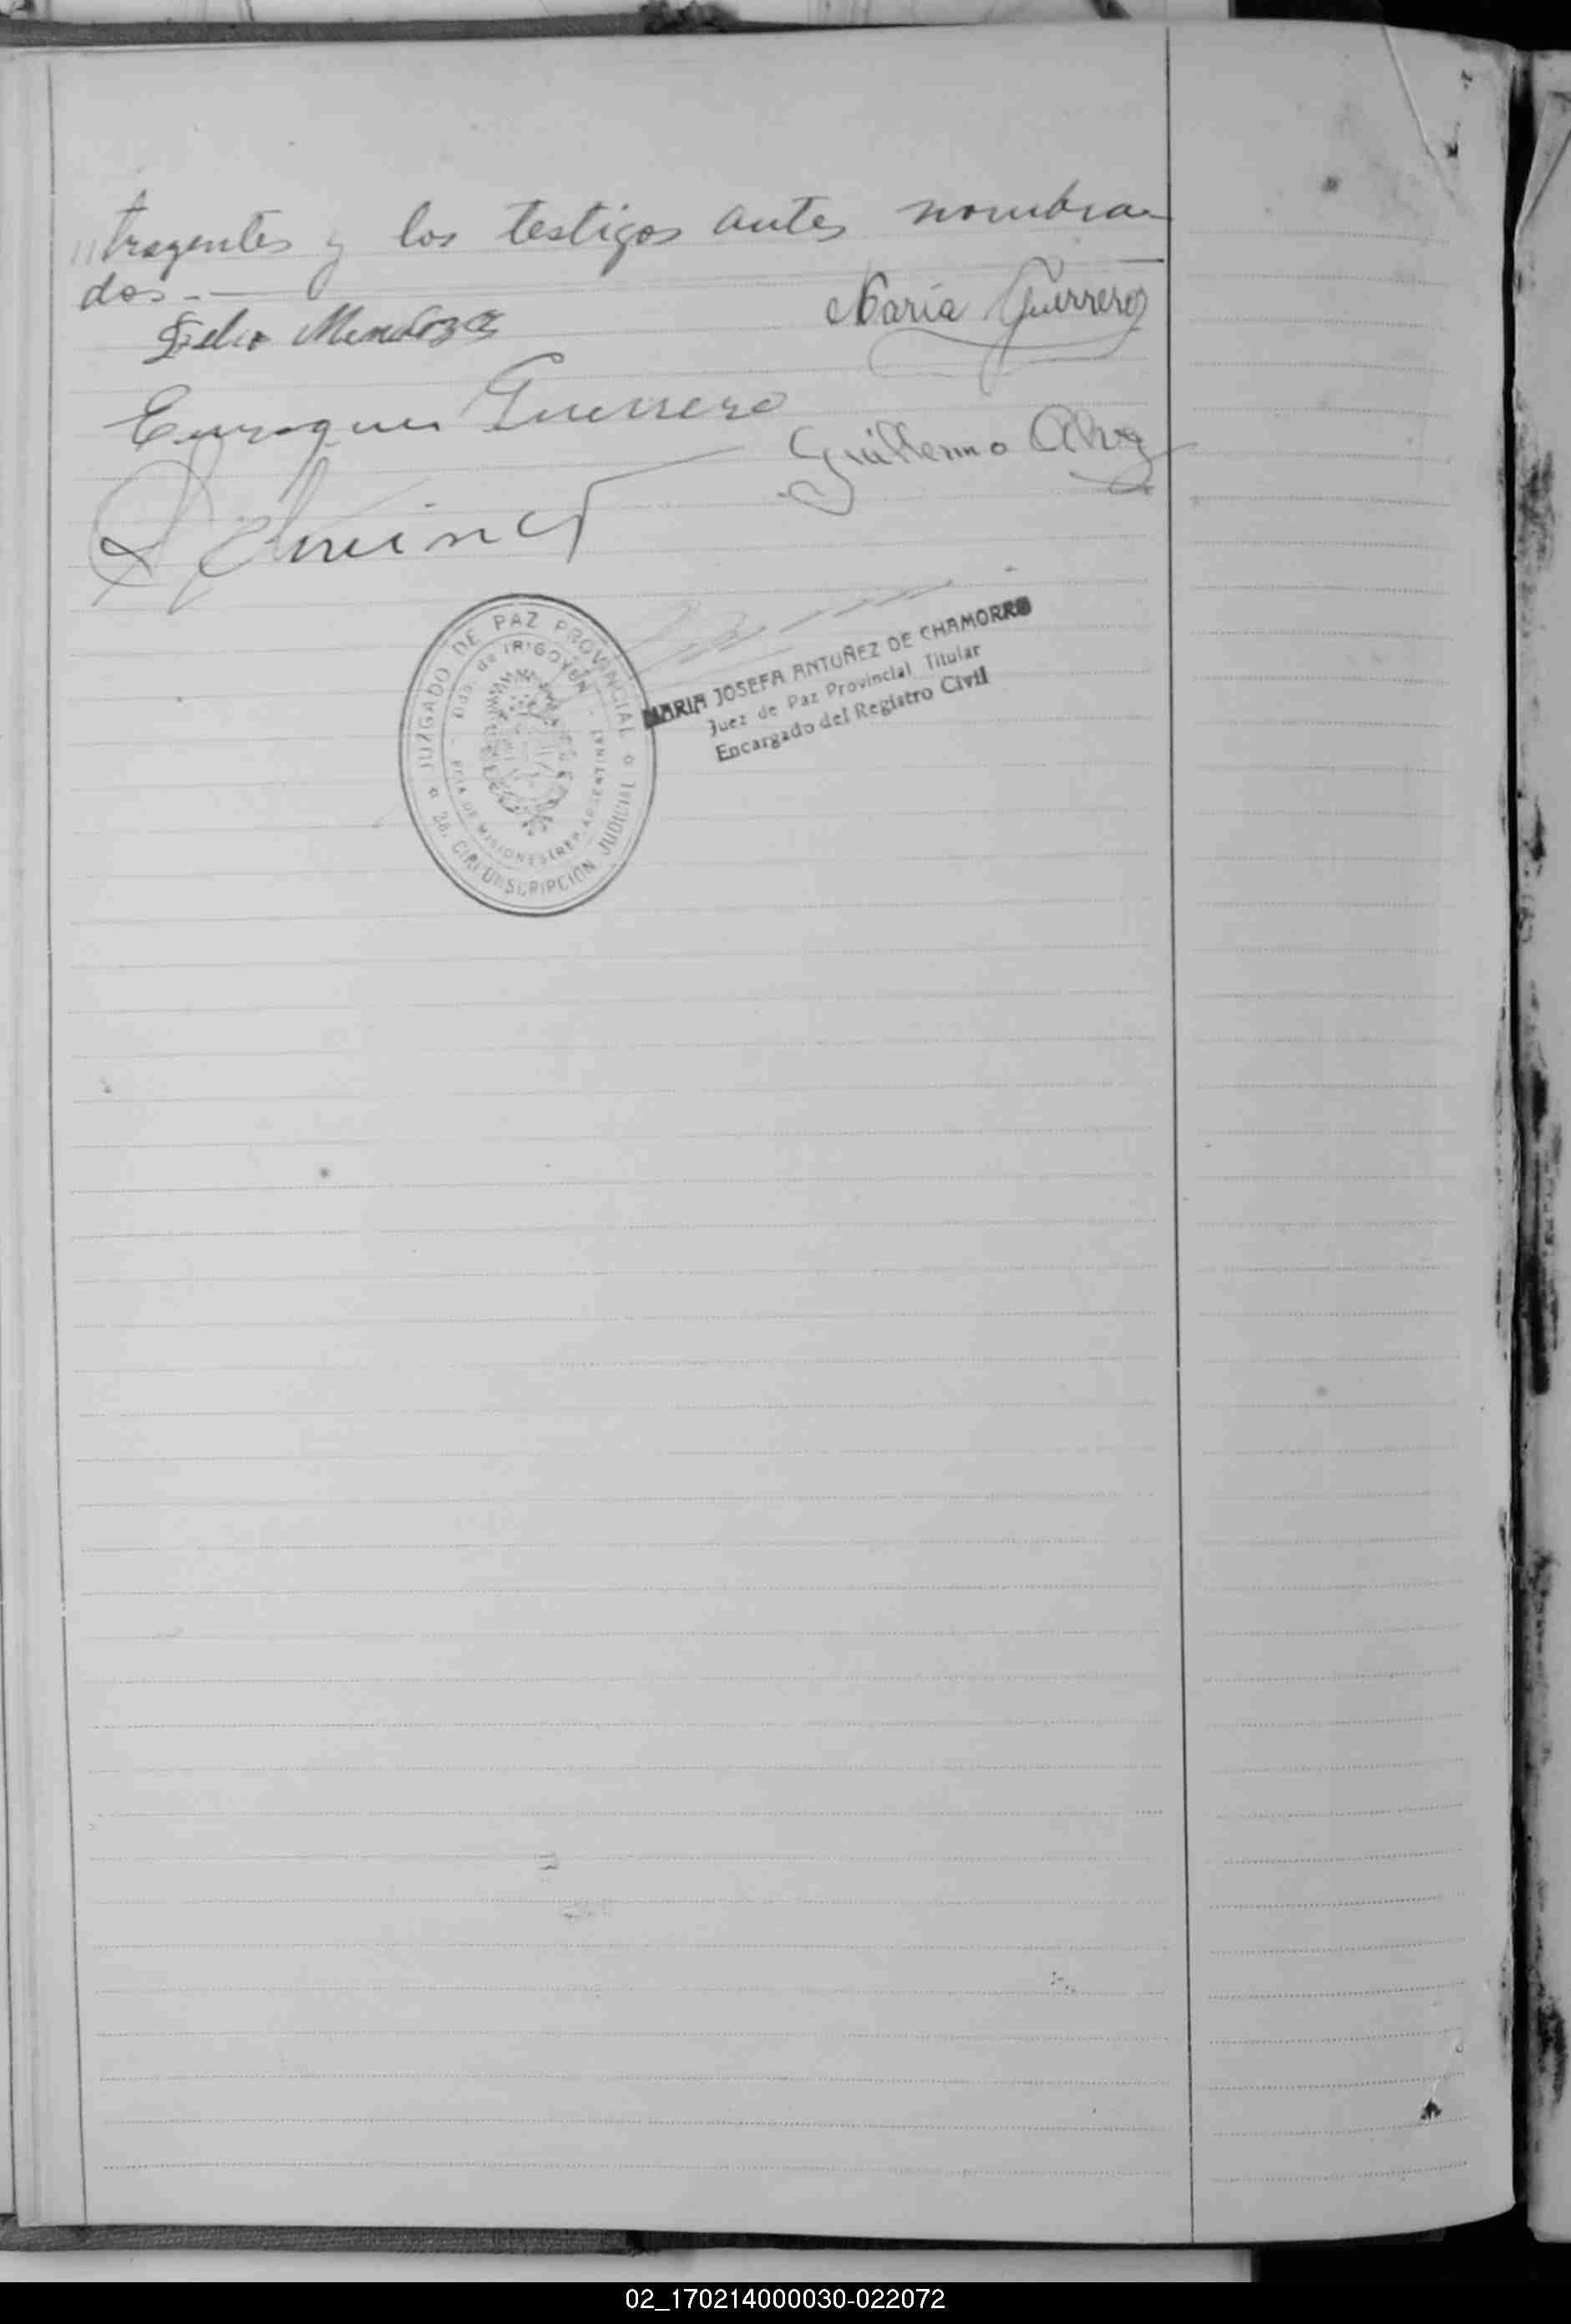 "trayentes y los testigos antes nombra-
dos.-
Felix Mendoza
Maria Guerrero
Guerrero
Guillermo
JUZGADO DE PAZ PROVINCIAL
Gdo. de IRIGOYEN
PCIA DE MISIONES (REP. ARGENTINA)
3a. CIRCUNSCRIPCION JUDICIAL
MARIA JOSEFA ANTUÑEZ DE CHAMORRO
Juez de Paz Provincial Titular
Encargado del Registro Civil
02_170214000030-022072